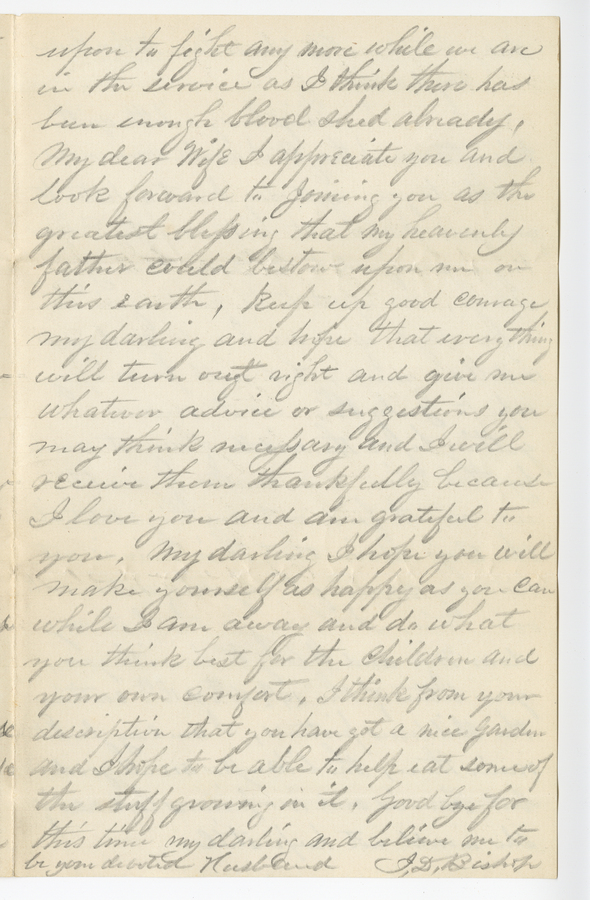 upon to fight any more while we are
in the service as I think there has
been enough blood shed already,
My dear Wife I appreciate you and
look forward to Joining you as the
greatest blessing that my heavenly
father could bestow upon me on
this earth, Keep up good courage
my darling and hope that everything
will turn out right and give me
whatever advice or suggestions you
may think necessary and I will
receive them thankfully because
I love you and am grateful to
you. My darling I hope you will
make yourself as happy as you can
while I am away and do what
you think best for the children and
your own comfort. I think from your
description that you have got a nice Garden
and I hope to be able to help eat some of
the stuff growing in it. Good bye for
this time my darling and believe me to
be your devoted Husband J. D. Bishop